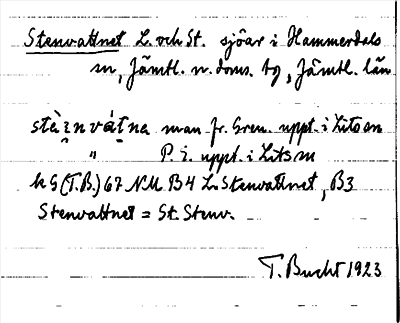 Stenvattnet L. och St. sjöar i Hammerdals
sn, Jämtl. n. doms. tg, Jämtl. län
stènvátna man fr. Gren. uppt. i Lits sn
" P. E. uppt. i Lits sn
k G (T.B.) 67 NU B4 L. Stenvattnet, B3
Stenvattnet = St. Stenv.
T. Bucht 1923